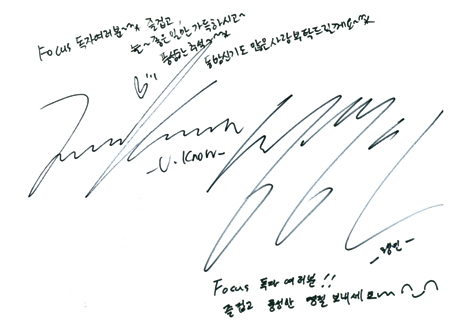 Focus 독자여러분~ 즐겁고,
늘~ 좋은일만 가득하시고~
풍성한 추석~
동방신기도 많은 사랑 부탁드릴게요~
-U.Know-
Focus 독자 여러분!!
즐겁고 풍성한 명절 보내세요~